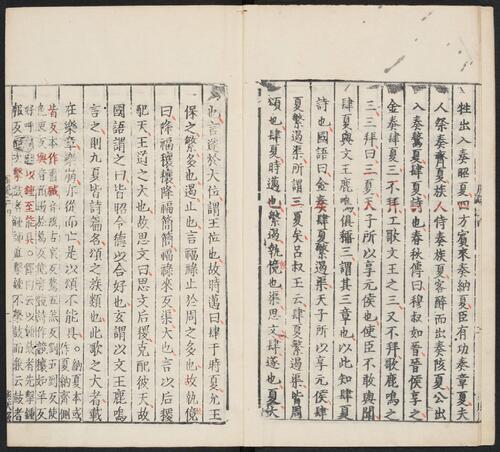 牲出入奏昭夏四方賓來奏納夏臣有功奏章夏夫
人祭奏齊夏族人侍奏族夏客醉而出奏陔夏公出
入奏驁夏肆夏詩也春秋傳曰穆叔如晉晉侯享之
金奏肆夏三不拜工歌文王之三又不拜歌鹿鳴之
三三拜曰三夏天子所以享元侯也使臣不敢與聞
肆夏與文王鹿鳴俱稱三謂其三章也以此知肆夏
詩也國語曰金奏肆夏繁遏渠天子所以享元侯肆
夏繁遏渠所謂三夏矣呂叔玉云肆夏繁遏渠皆周
頌也肆夏時邁也繁遏執傹也渠思文肆遂也夏大
也言遂於大位謂王位也故時邁曰肆于時夏允王
保之繁多也遏止也言福祿止於周之多也故執傹
曰降福穰穰降福簡簡福祿來反渠大也言以后稷
配天王道之大也故思文曰思文后稷克配彼天故
國語謂之曰皆昭令德以合好也玄謂以文王鹿鳴
言之則九夏皆詩篇名頌之族類也此歌之大者載
在樂章樂崩亦從而亡是以頌不能具